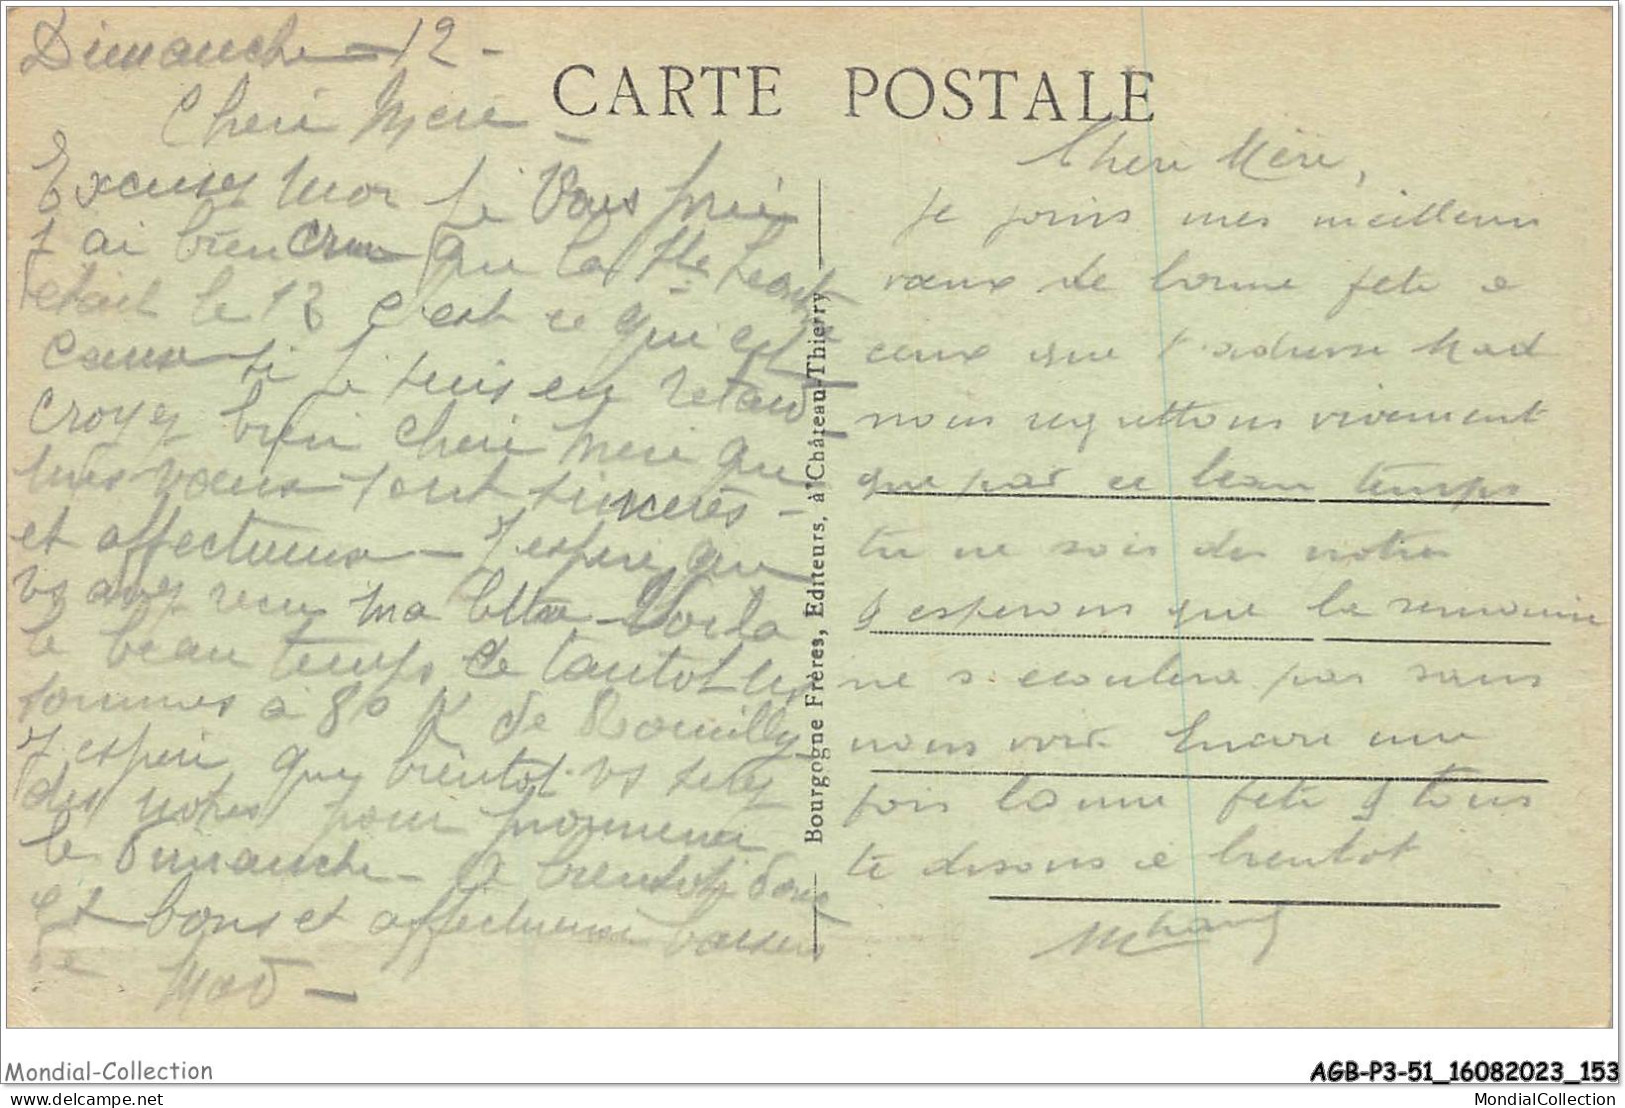 Dimanche - 12 -
Cheri Mere -
Excusez moi je vous prie
J ai bien cru que la Ste
etait le 13 c'est ce qui est
cause si je suis en retard
Croyez bien cheri mere que
mes vœux sont sinceres -
et affectueux - J espere que
vs avez recu ma lettre - Voila
le beau temps de tantot ns
sommes à 80 K de Romilly
J espere que bientot vs serez
des notres pour promener
le Dimanche - a bientot dans
et bons et affectueux baisers
de Mad -
CARTE POSTALE
Bourgogne Frères, Editeurs, à Château-Thierry
Chere Mère,
je joins mes meilleurs
vœux de bonne fete a
ceux que t'adresse Mad
nous regrettons vivement
que par ce beau temps
tu ne sois des notres
J esperons que la semaine
ne s ecoulera pas sans
nous voir Encore une
fois bonne fete et tous
te disons a bientot
Mondial-Collection
AGB-P3-51_16082023_153
delcampe.net
MondialCollection